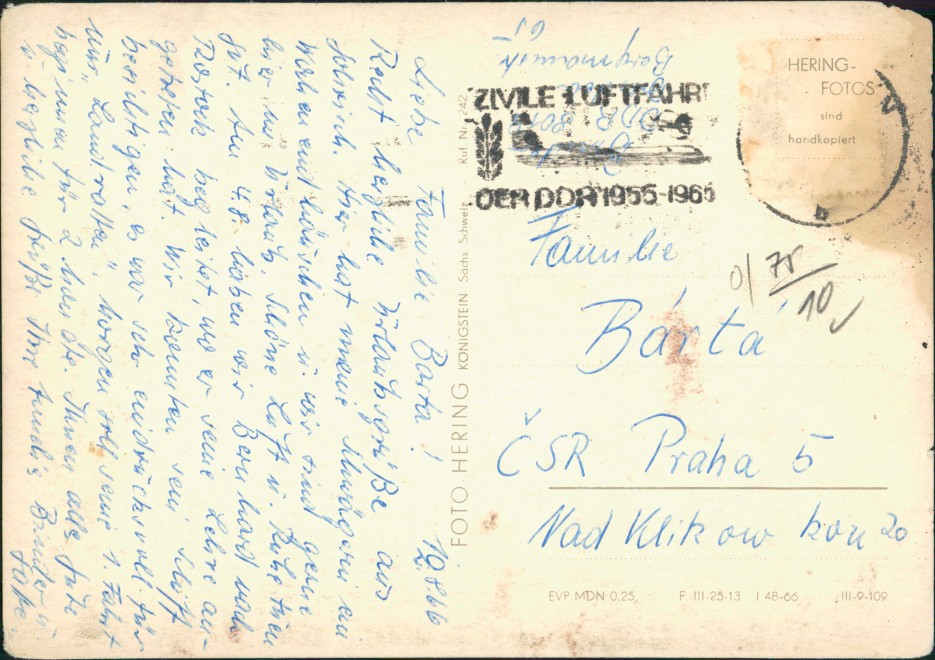 Liebe Familie Barta! 10.8.66
Recht herzliche Urlaubsgrüße aus
Hier hat meine Schwägerin ein
Wochenendhäuschen u. wir sind gerne
hier im Urlaub. Schöne Luft u. Ruhe tun
gut. Am 4.8. haben wir Bernhard nach
Rostock begleitet, wo er seine Lehre an-
getreten hat. Wir konnten sein Schiff
besichtigen es war sehr eindrucksvoll für
uns "Landratten". Morgen soll seine 1. Fahrt
beginnen für 2 Monate. Ihnen alles Gute
u. herzliche Grüße Ihre
FOTO · HERING KÖNIGSTEIN Sächs. Schweiz Ruf Nr. 242
Bergmann
65
DDR
ZIVILE LUFTFAHRT
DER DDR 1955-1965
HERING-
FOTOS
sind
handkopiert
Familie
Bárta
0/ 75
10
ČSR Praha 5
Nad Klikow kou 20
EVP MDN 0.25 F III-25-13 I 48-66 III-9-109